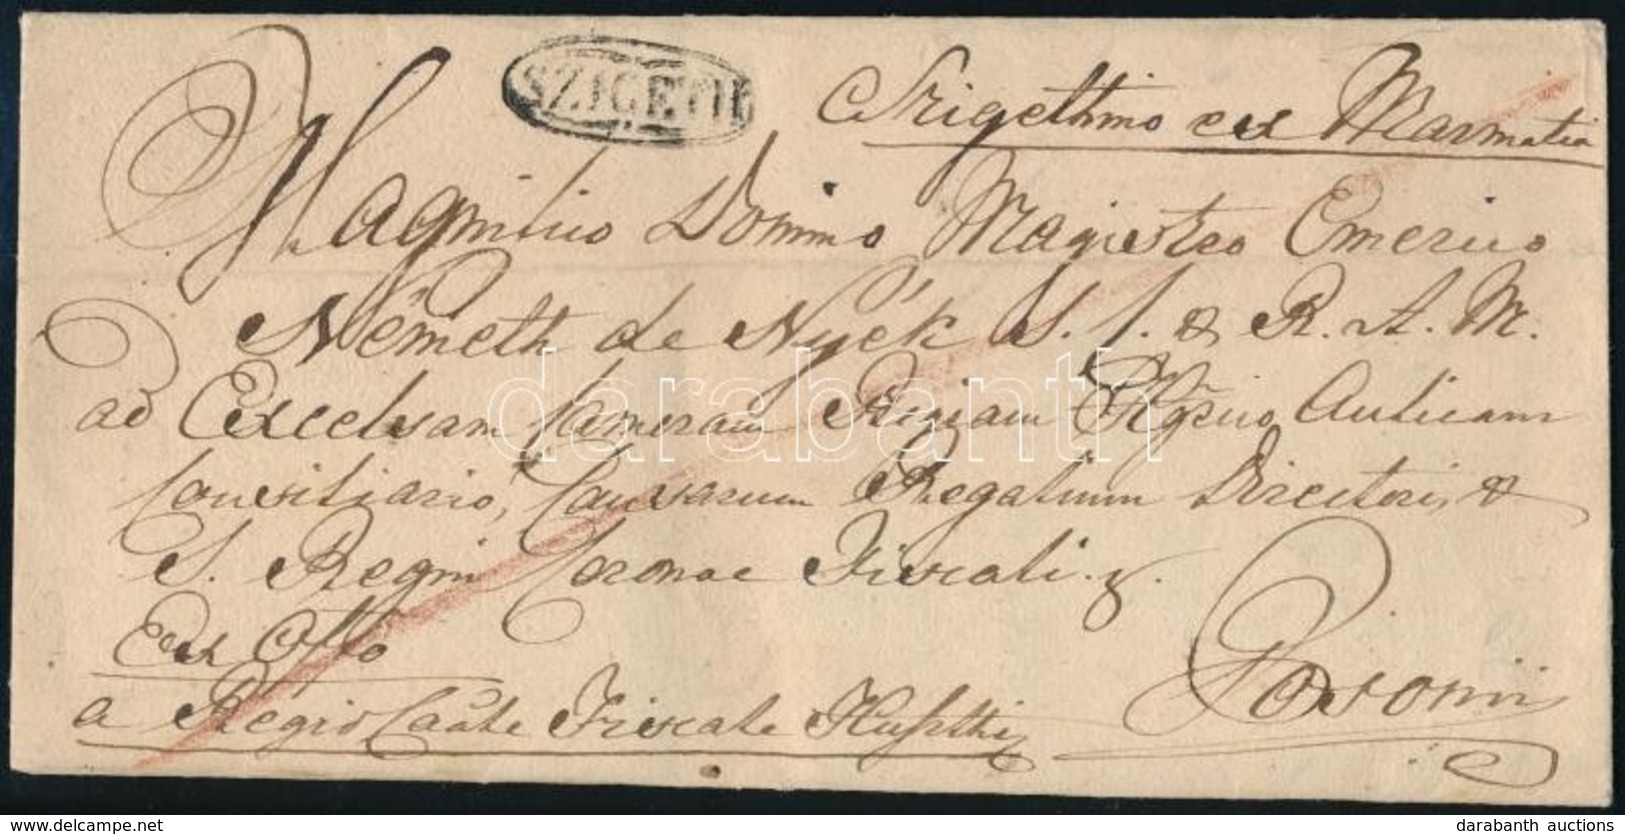 SZIGETH
Szigethino ex Marmatia
Magnifico Domino Magistro Emerico
Németh de Nyék S. J. & R. A. M.
ad Excelsam Cameram Regiam Aulicam
Consiliario, Causarum Regalium Directori, &
S. Regni Coronae Fiscali.
Ex Offo
Posonii
a Regio Camle Fiscale Huszthi
darabanth
delcampe.net
darabanth auctions